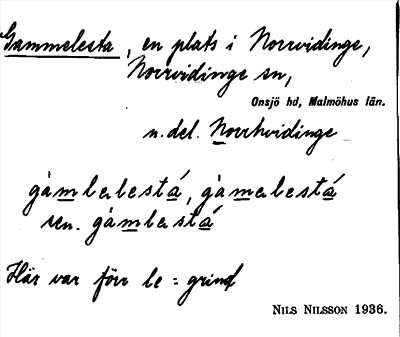 Gammelesta, en plats i Norrvidinge,
Norrvidinge sn,
Onsjö hd, Malmöhus län.
n. del. Norrhvidinge
gàmlelestá, gàmalestá
sen. gàmlastá
Här var förr le = grind
NILS NILSSON 1936.